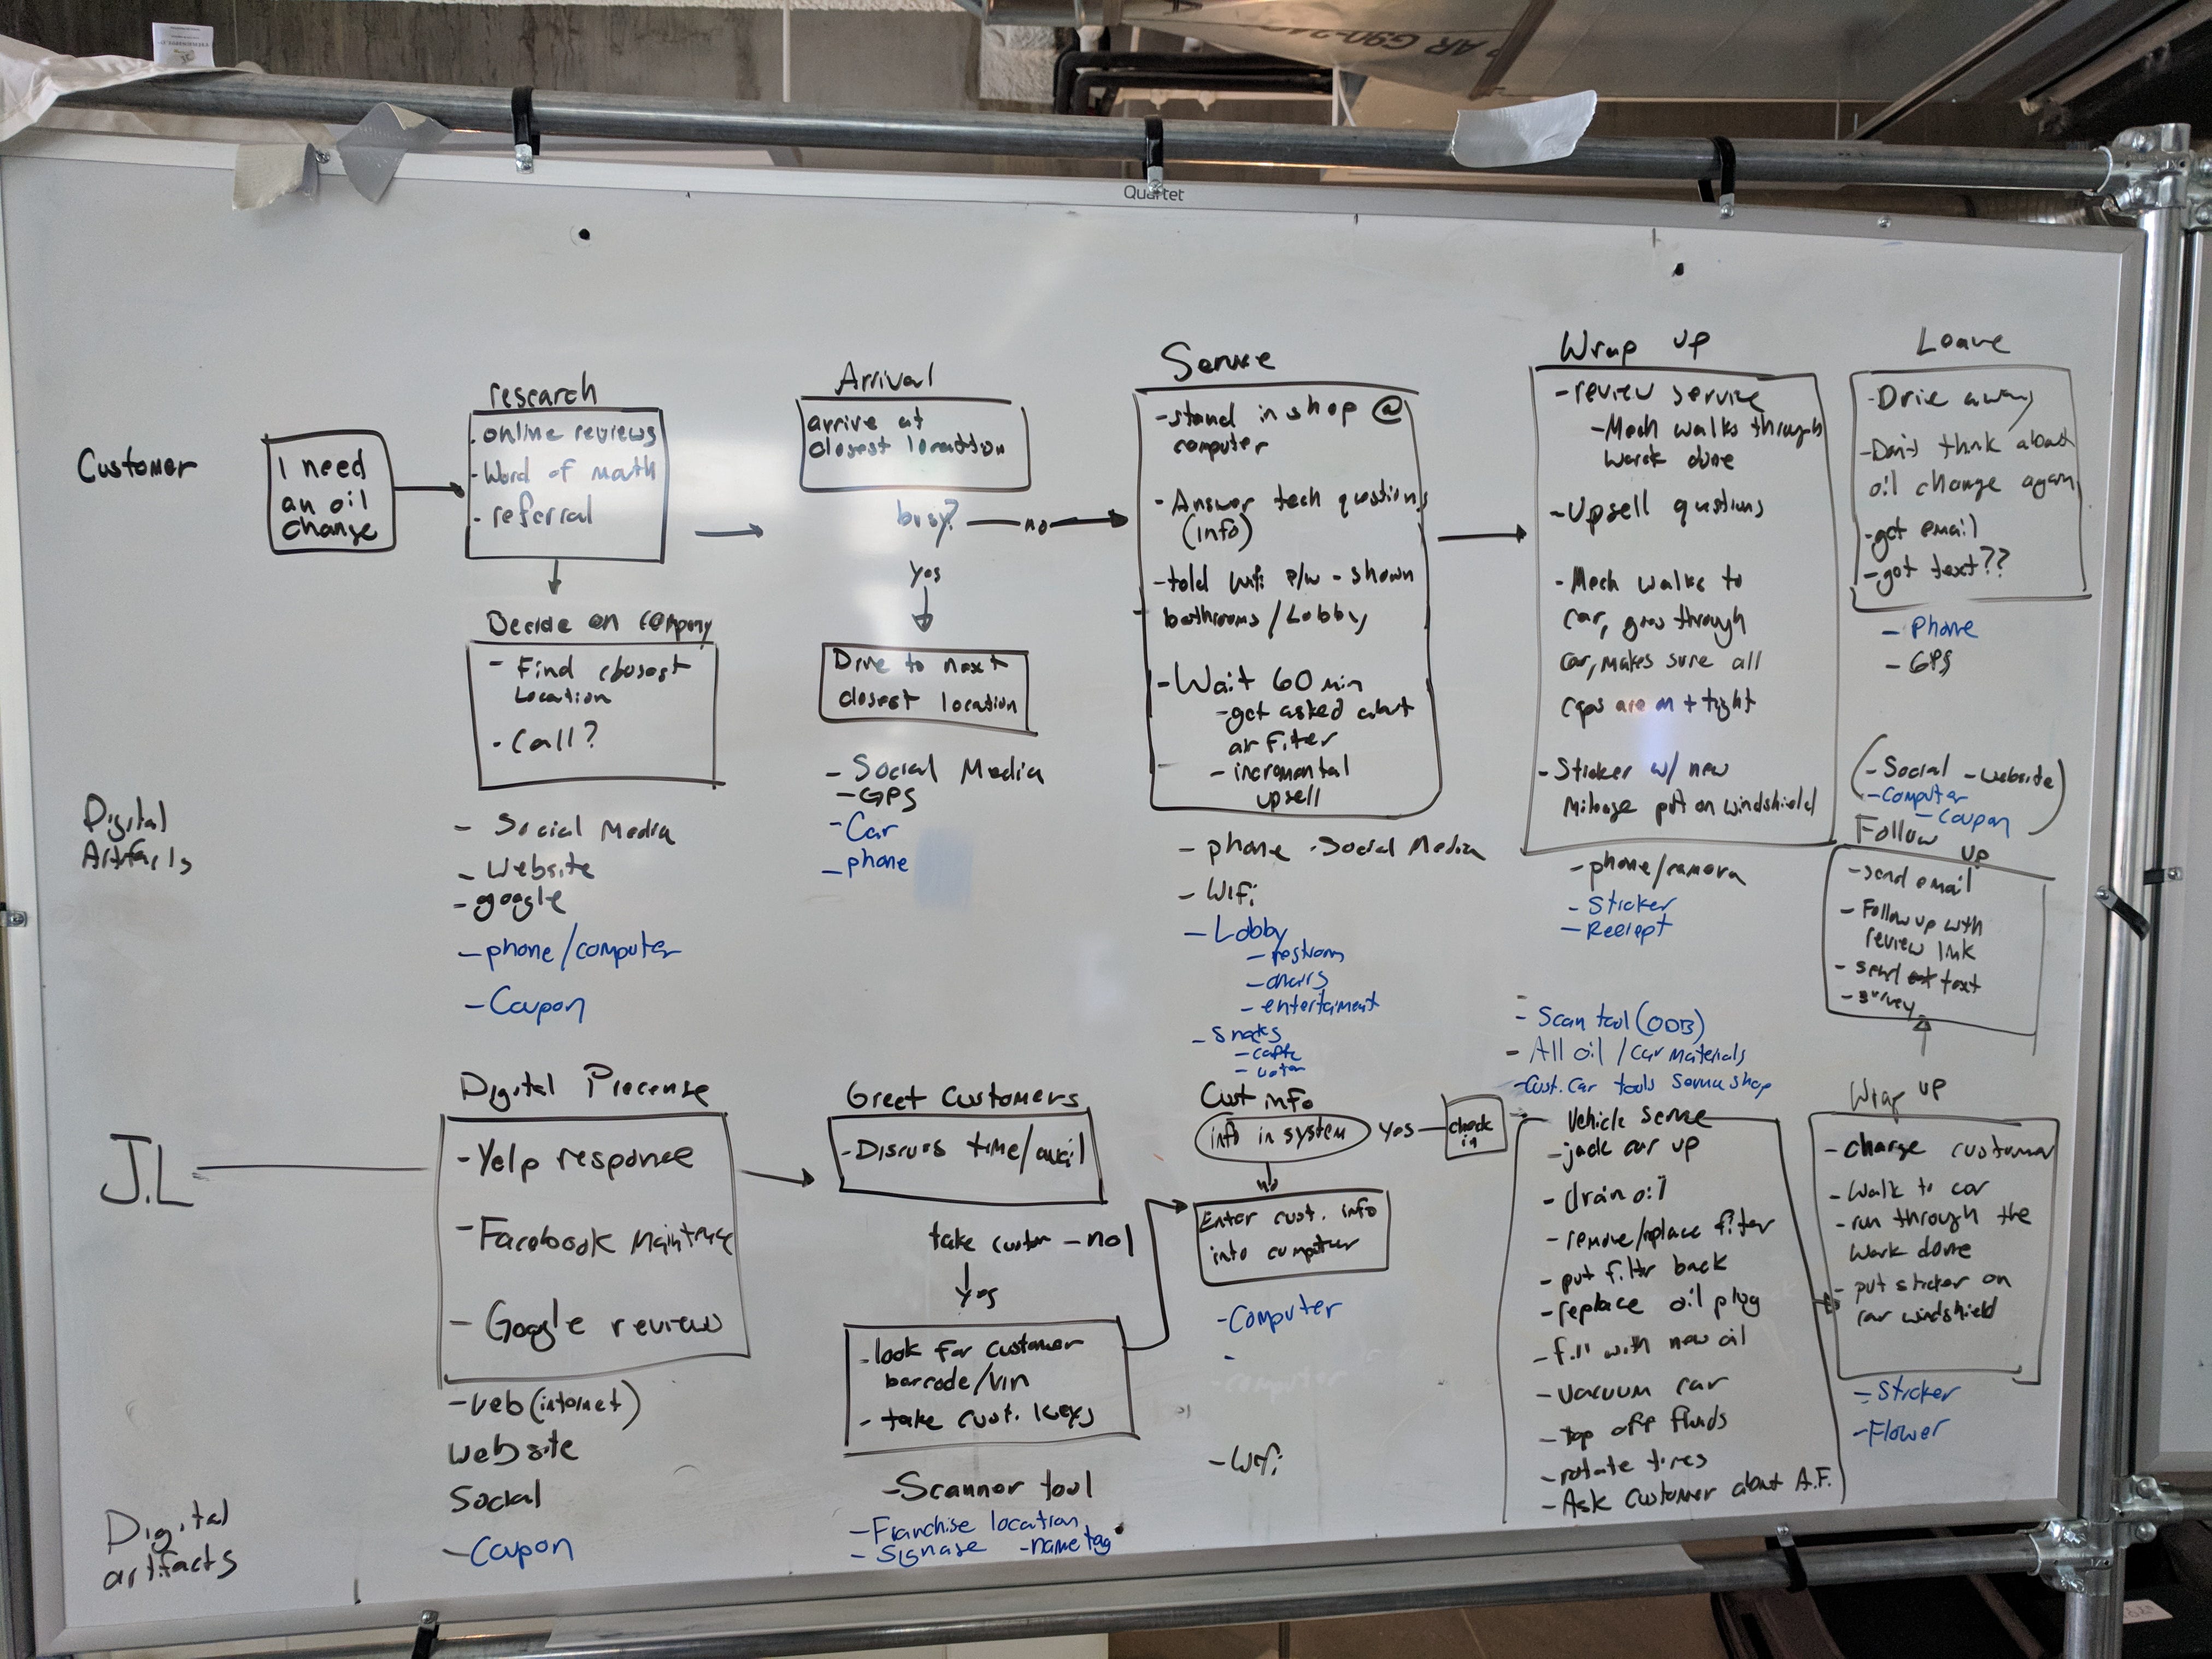 AR G90-
Quartet
Customer
I need
an oil
change
research
- online reviews
- Word of mouth
- referral
Decide on company
- Find closest
Location
- Call?
Arrival
arrive at
closest location
busy? — no
yes
Drive to next
closest location
Service
- stand in shop @
computer
- Answer tech questions
(info)
- told wifi p/w - shown
bathrooms / Lobby
- Wait 60 min
- get asked about
air filter
- incremental
upsell
Wrap up
- review service
- Mech walks through
work done
- Upsell questions
- Mech walks to
car, goes through
car, makes sure all
caps are on + tight
- Sticker w/ new
Mileage put on windshield
Leave
- Drive away
- Don't think about
oil change again
- get email
- got text??
- phone
- GPS
(- Social - website)
- Computer
- Coupon
Digital
Artifacts
- Social Media
- Website
- google
- phone / computer
- Coupon
- Social Media
- GPS
- Car
- phone
- phone - Social Media
- Wifi
- Lobby
- restroom
- chairs
- entertaiment
- Snacks
- water
- phone/camera
- Sticker
- Reciept
- Scan tool (ODB)
- All oil / car materials
- Cust. car tools Service shop
Follow up
- send email
- Follow up with
review link
- send text
- survey
J.L
Digital Precense
- Yelp response
- Facebook
- Google reviews
- web (internet)
website
Social
- Coupon
Greet Customers
- Discuss time/avail
take custom - no
yes
- look for customer
barcode/vin
- take cust. keys
- Scanner tool
- Franchise location
- Signage - name tag
Cust info
info in system yes — check in
no
Enter cust. info
into computer
- Computer
- Wifi
Vehicle service
- jack car up
- drain oil
- remove/replace filter
- put filter back
- replace oil plug
- fill with new oil
- vacuum car
- top off fluids
- rotate tires
- Ask customer about A.F.
Wrap up
- charge customer
- Walk to car
- run through the
work done
- put sticker on
car windshield
- Sticker
- Flower
Digital
artifacts